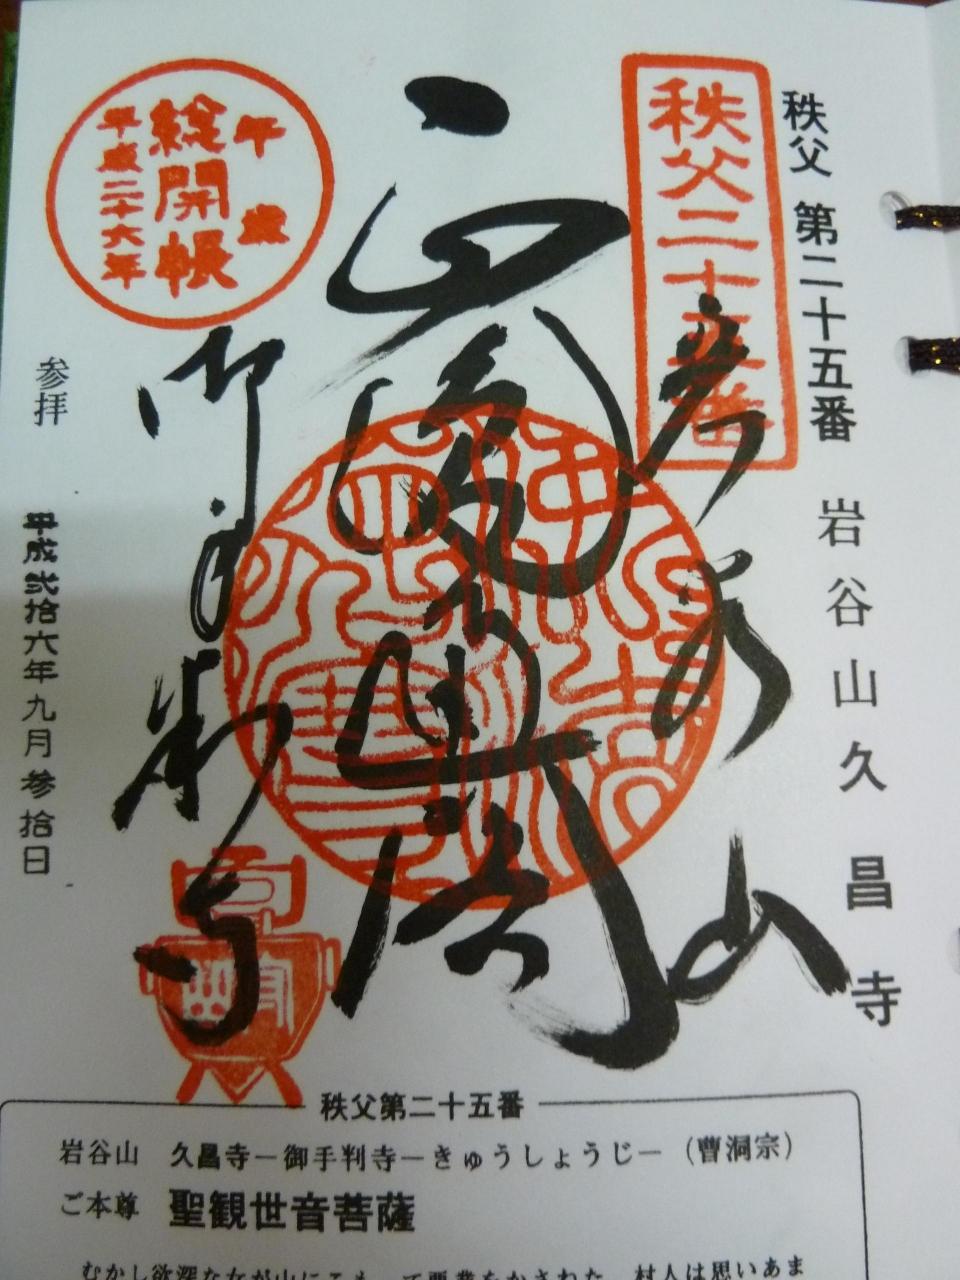 秩父 第二十五番 岩谷山久昌寺
秩父二十五番
岩谷山
御手判寺
午歳
総開帳
平成二十六年
参拝 平成弐拾六年九月参拾日
秩父第二十五番
岩谷山 久昌寺ー御手判寺ーきゅうしょうじー（曹洞宗）
ご本尊 聖観世音菩薩
むかし欲深な女が山にこもって悪業をかさねた。村人は思いあま